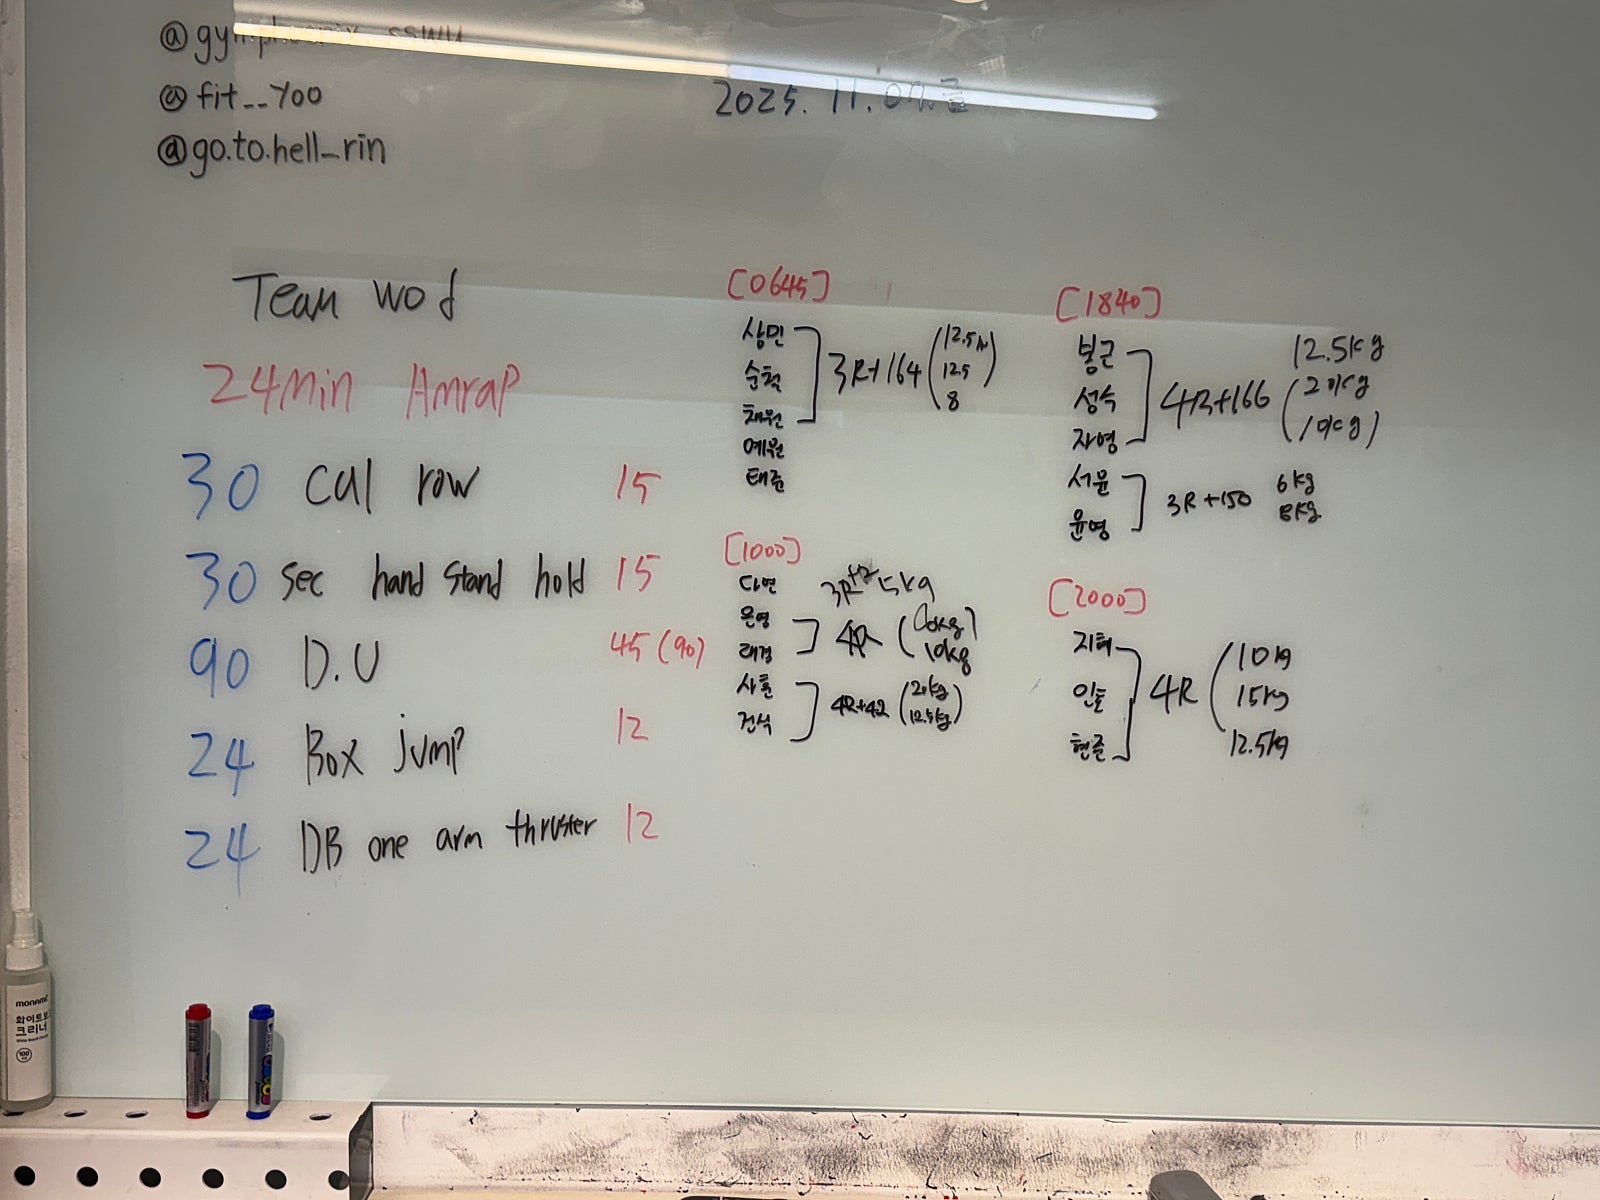 @gymphoenix_sswu
@fit__yoo
@go.to.hell_rin
2025. 11. 07. 금
Team wod
24min Amrap
30 cal row 15
30 sec hand stand hold 15
90 D.U 45 (90)
24 Box jump 12
24 DB one arm thruster 12
[0645]
상민
순철
채원
예원
태준
3R+164
12.5
8
[1000]
다연 3R+2 5kg
은영
래경
4R
10kg
10kg
사훈
건식
4R+42
20kg
12.5kg
[1840]
봉근
성숙
자영
4R+166
12.5kg
20kg
10kg
서윤
윤영
3R+150
6kg
8kg
[2000]
지혜
인호
현준
4R
10kg
15kg
12.5kg
monami
화이트보
크리너
100